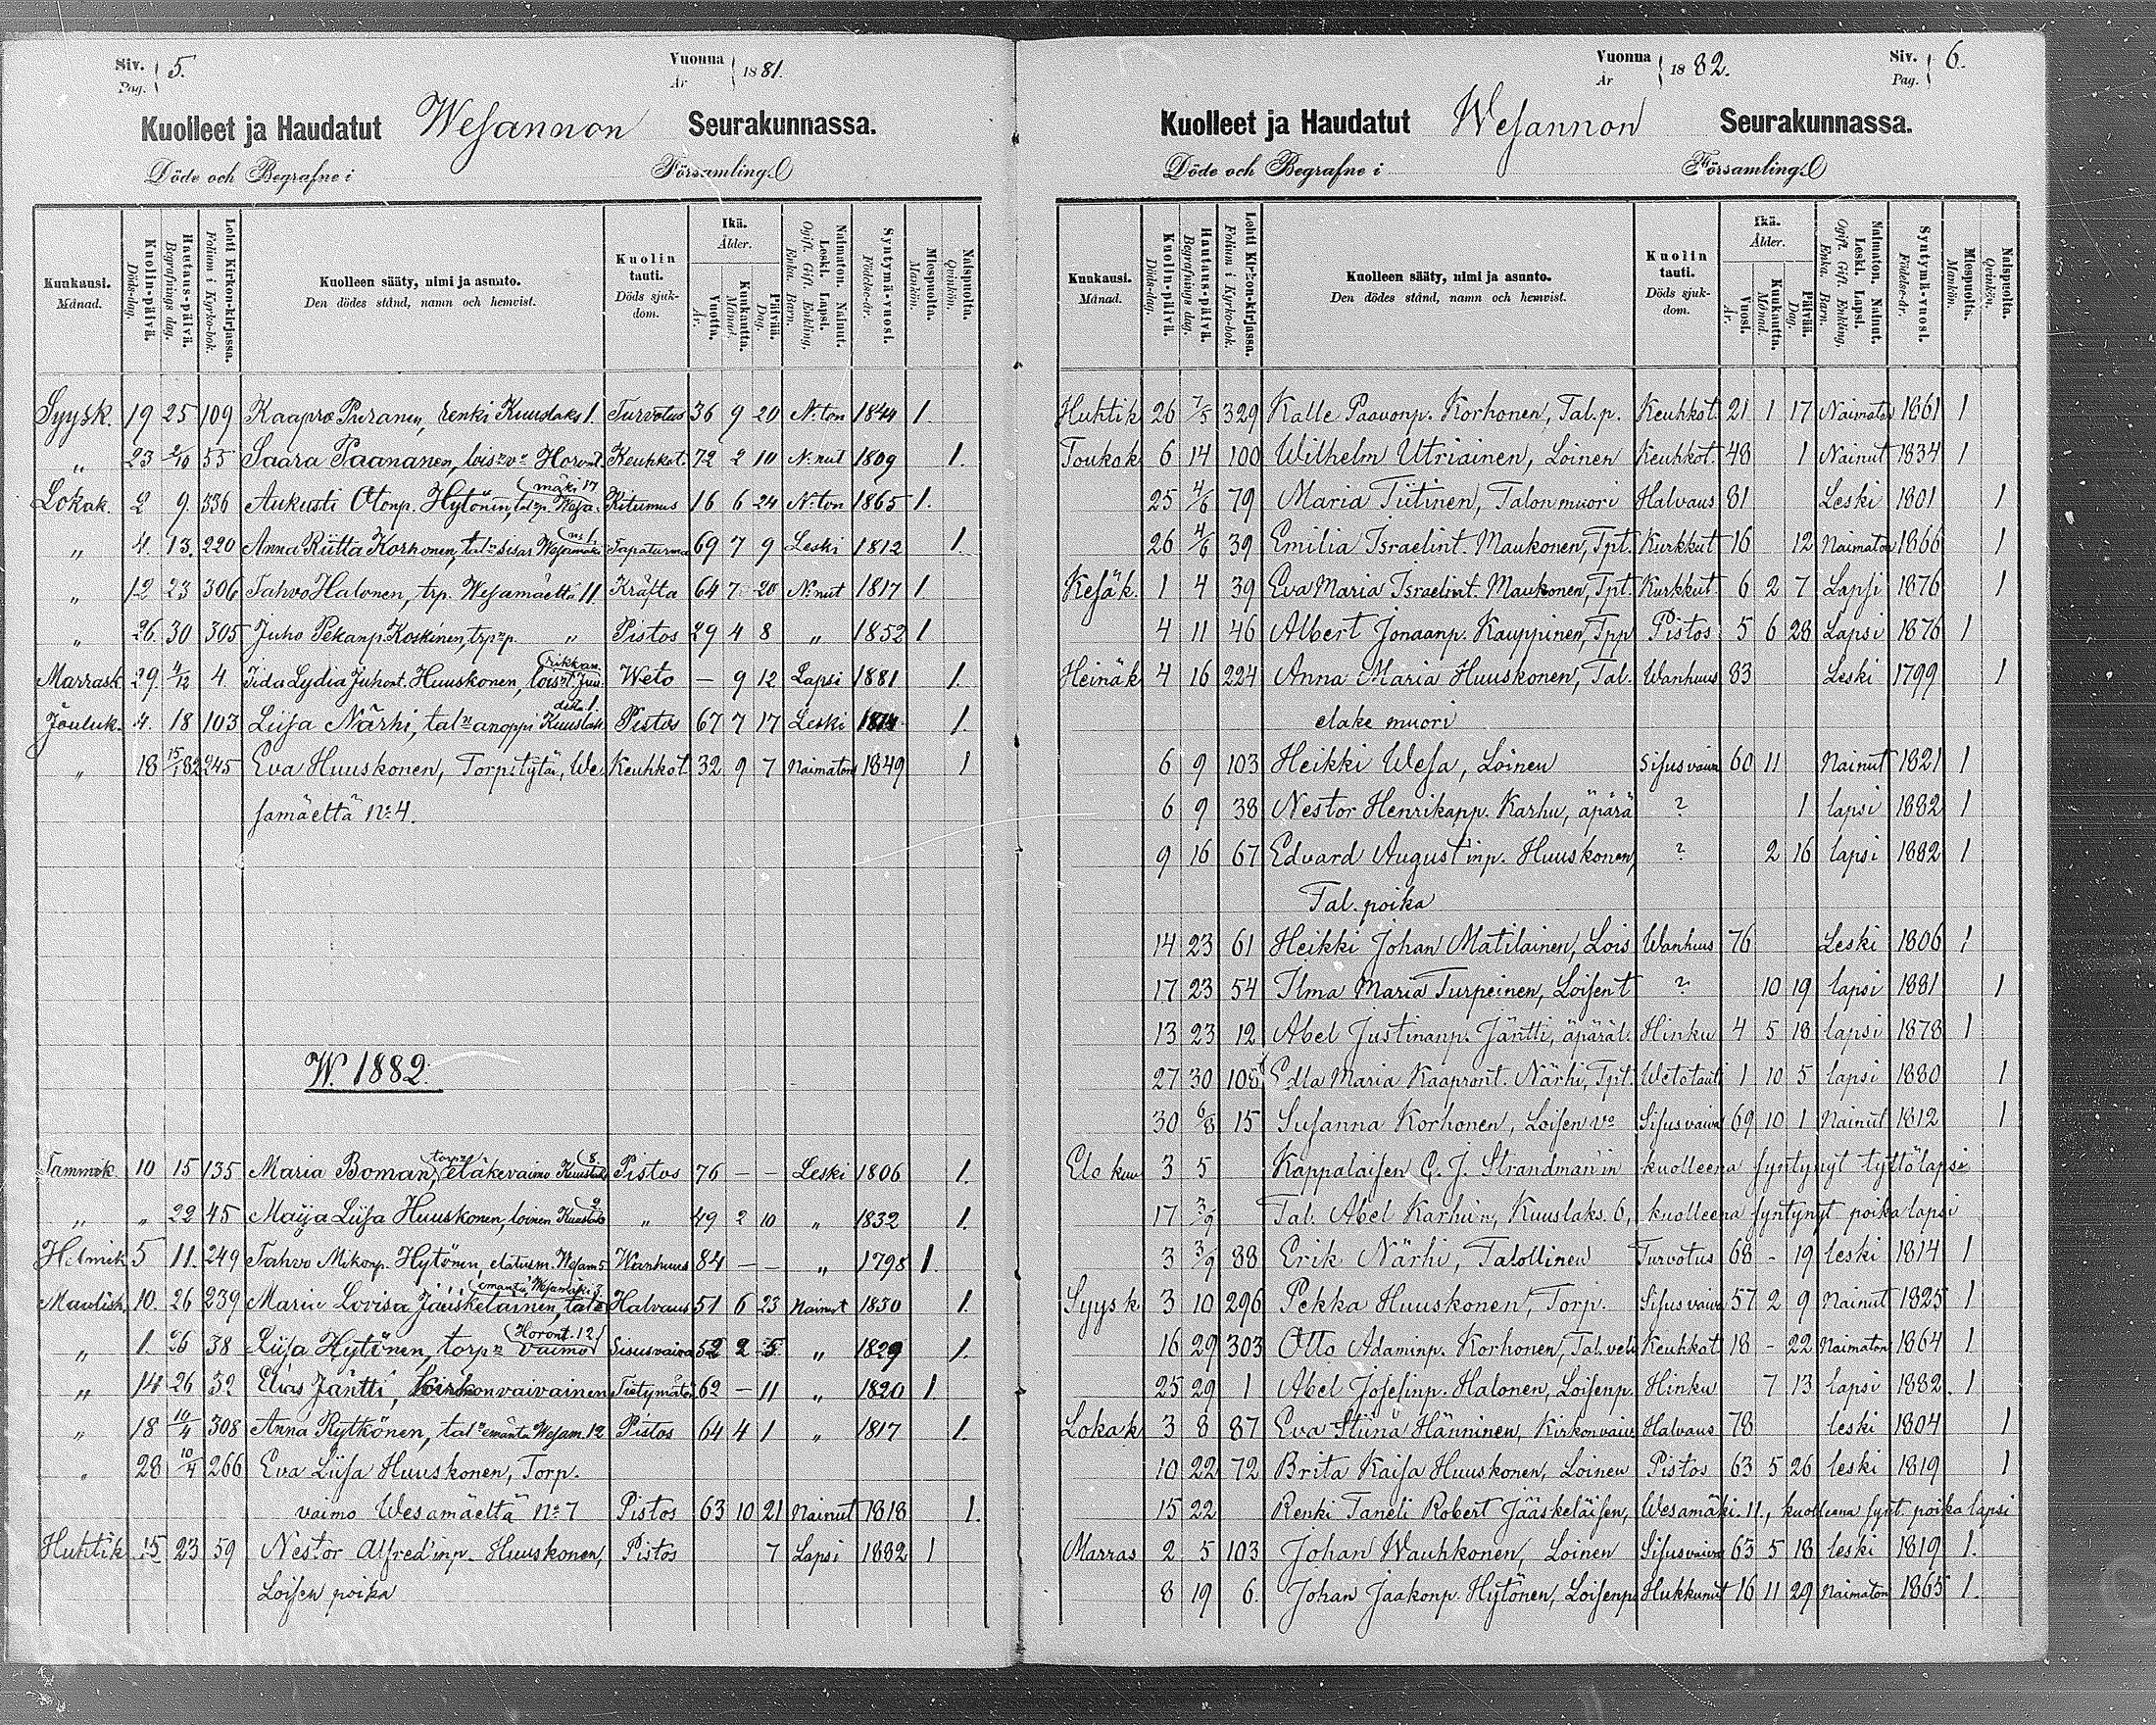 Siv. Pag. 5.
Vuonna År 1881.
Kuolleet ja Haudatut Wesannon Seurakunnassa.
Döde och Begrafne i Församling.
Kuukausi. Månad.
Kuolin-päivä. Döds-dag.
Hautaus-päivä. Begrafnings dag.
Lehti Kirkon-kirjassa. Folium i Kyrko-bok.
Kuolleen sääty, nimi ja asunto. Den dödes stånd, namn och hemvist.
Kuolin tauti. Döds sjukdom.
Ikä. Ålder.
Vuotta. År.
Kuukautta. Månad.
Päivää. Dag.
Naimaton. Nainut. Leski. Lapsi. Ogift. Gift. Enkling, Enka. Barn.
Syntymä-vuosi. Födelse-år.
Miespuolta. Mankön.
Naispuolta. Qvinkön.
Syysk. 19 25 109 Kaapro Puranen, renki Kuuslaks 1. Turvotus 36 9 20 N:ton 1844 1.
„ 23 2/10 55 Saara Paananen, lois:n v:o Horont. Keuhkot. 72 2 10 N:nut 1809 1.
Lokak. 2 9. 336 Aukusti Otonp. Hytönen, tal:np. Wesamäki 17 Kitumus 16 6 24 N:ton 1865 1.
„ 4. 13. 220 Anna Riitta Korhonen, tal:n sisar Wesamäki n:1. Tapaturma 69 7 9 Leski 1812 1.
„ 12 23 306 Tahvo Halonen, trp. Wesamäeltä 11. Kräfta 64 7 20 N:nut 1817 1.
„ 26. 30 305 Juho Pekanp. Koskinen, trp:np. „ Pistos 29 4 8 „ 1852 1
Marrask. 29. 4/12 4. Iida Lydia Juhont. Huuskonen, lois:n t. Weto — 9 12 Lapsi 1881 1.
Jouluk. 4. 18 103 Liisa Närhi, tal:n anoppi Kuuslah Pistos 67 7 17 Leski 1814 1.
„ 18 15/1 82 245 Eva Huuskonen, Torpitytär, We- Keuhkot 32 9 7 Naimaton 1849 1
samäeltä N:o 4.
W. 1882.
Tammik. 10 15 135 Maria Boman, torp:n eläkevaimo Kuuslaks 8. Pistos 76 — — Leski 1806 1.
„ „ 22 45 Maija Liisa Huuskonen, loinen Kuuslaks 2 „ 49 2 10 „ 1832 1.
Helmik 5 11. 249 Tahvo Mikonp. Hytönen, elatusm. Wesam 5 Wanhuus 84 — — „ 1798 1.
Maalisk. 10. 26 239 Maria Lovisa Jääskeläinen, tal:n emäntä, Wesamäki 3. Halvaus 51 6 23 Nainut 1830 1.
„ 1. 26 38 Liisa Hytönen, torp:n vaimo Horont. 12 Sisusvaiva 52 2 5 „ 1829 1.
„ 14 26 32 Elias Jäntti, Kirkonvaivainen Tietymätön 62 — 11 „ 1820 1
„ 18 10/4 308 Anna Rytkönen, tal:n emäntä Wesam. 12 Pistos 64 4 1 „ 1817 1.
„ 28 10/4 266 Eva Liisa Huuskonen, Torp.
vaimo Wesamäeltä N:o 7 Pistos 63 10 21 Nainut 1818 1.
Huhtik. 15 23 59 Nestor Alfred'inp. Huuskonen, Pistos 7 Lapsi 1882 1
Loisen poika
Vuonna År 1882.
Siv. Pag. 6.
Kuolleet ja Haudatut Wesannon Seurakunnassa.
Döde och Begrafne i Församling.
Kuukausi. Månad.
Kuolin-päivä. Döds-dag.
Hautaus-päivä. Begrafnings dag.
Lehti Kirkon-kirjassa. Folium i Kyrko-bok.
Kuolleen sääty, nimi ja asunto. Den dödes stånd, namn och hemvist.
Kuolin tauti. Döds sjukdom.
Ikä. Ålder.
Vuosi. År.
Kuukautta. Månad.
Päivää. Dag.
Naimaton. Nainut. Leski. Lapsi. Ogift. Gift. Enkling, Enka. Barn.
Syntymä-vuosi. Födelse-år.
Miespuolta. Mankön.
Naispuolta. Qvinkön.
Huhtik 26 7/5 329 Kalle Paavonp. Korhonen, Tal. p. Keuhkot. 21 1 17 Naimaton 1861 1
Toukok 6 14 100 Wilhelm Utriainen, Loinen Keuhkot. 48 1 Nainut 1834 1
25 4/6 79 Maria Tiitinen, Talonmuori Halvaus 81 Leski 1801 1
26 4/6 39 Emilia Israelint. Maukonen, Tpt. Kurkkut 16 12 Naimaton 1866 1
Kesäk. 1 4 39 Eva Maria Israelint. Maukonen, Tpt. Kurkkut. 6 2 7 Lapsi 1876 1
4 11 46 Albert Jonaanp. Kauppinen, Tpp Pistos 5 6 28 Lapsi 1876 1
Heinäk 4 16 224 Anna Maria Huuskonen, Tal. Wanhuus 83 Leski 1799 1
eläke muori
6 9 103 Heikki Wesa, Loinen Sisusvaiva 60 11 Nainut 1821 1
6 9 38 Nestor Henrikapp. Karhu, äpärä ? 1 lapsi 1882 1
9 16 67 Edvard August'inp. Huuskonen, ? 2 16 lapsi 1882 1
Tal. poika
14 23 61 Heikki Johan Matilainen, Lois Wanhuus 76 Leski 1806 1
17 23 54 Ilma Maria Turpeinen, Loisen t ? 10 19 lapsi 1881 1
13 23 12 Abel Justinanp. Jäntti, äpäräl. Hinku 4 5 18 lapsi 1878 1
27 30 108 Edla Maria Kaapront. Närhi, Tpt. Wetotauti 1 10 5 lapsi 1880 1
30 6/8 15 Susanna Korhonen, Loisen v:o Sisusvaiva 69 10 1 Nainut 1812 1
Elo kuu 3 5 Kappalaisen C. J. Strandman'in kuolleena syntynyt tyttölapsi
17 3/9 Tal. Abel Karhu'n, Kuuslaks. 6, kuolleena syntynyt poikalapsi
3 3/9 88 Erik Närhi, Talollinen Turvotus 68 - 19 leski 1814 1
Syysk 3 10 296 Pekka Huuskonen, Torp. Sisusvaiva 57 2 9 Nainut 1825 1
16 29 303 Otto Adaminp. Korhonen, Tal. veli Keuhkot 18 - 22 Naimaton 1864 1
25 29 1 Abel Josefinp. Halonen, Loisenp. Hinku 7 13 lapsi 1882. 1
Lokak 3 8 87 Eva Stiina Hänninen, Kirkonvaiv Halvaus 78 leski 1804 1
10 22 72 Brita Kaisa Huuskonen, Loinen Pistos 63 5 26 leski 1819 1
15 22 Renki Taneli Robert Jääskeläisen, Wesamäki. 11., kuolleena synt. poika lapsi
Marras 2 5 103 Johan Wauhkonen, Loinen Sisusvaiva 63 5 18 leski 1819 1.
8 19 6. Johan Jaakonp. Hytönen, Loisenp Hukkunut 16 11 29 Naimaton 1865 1.